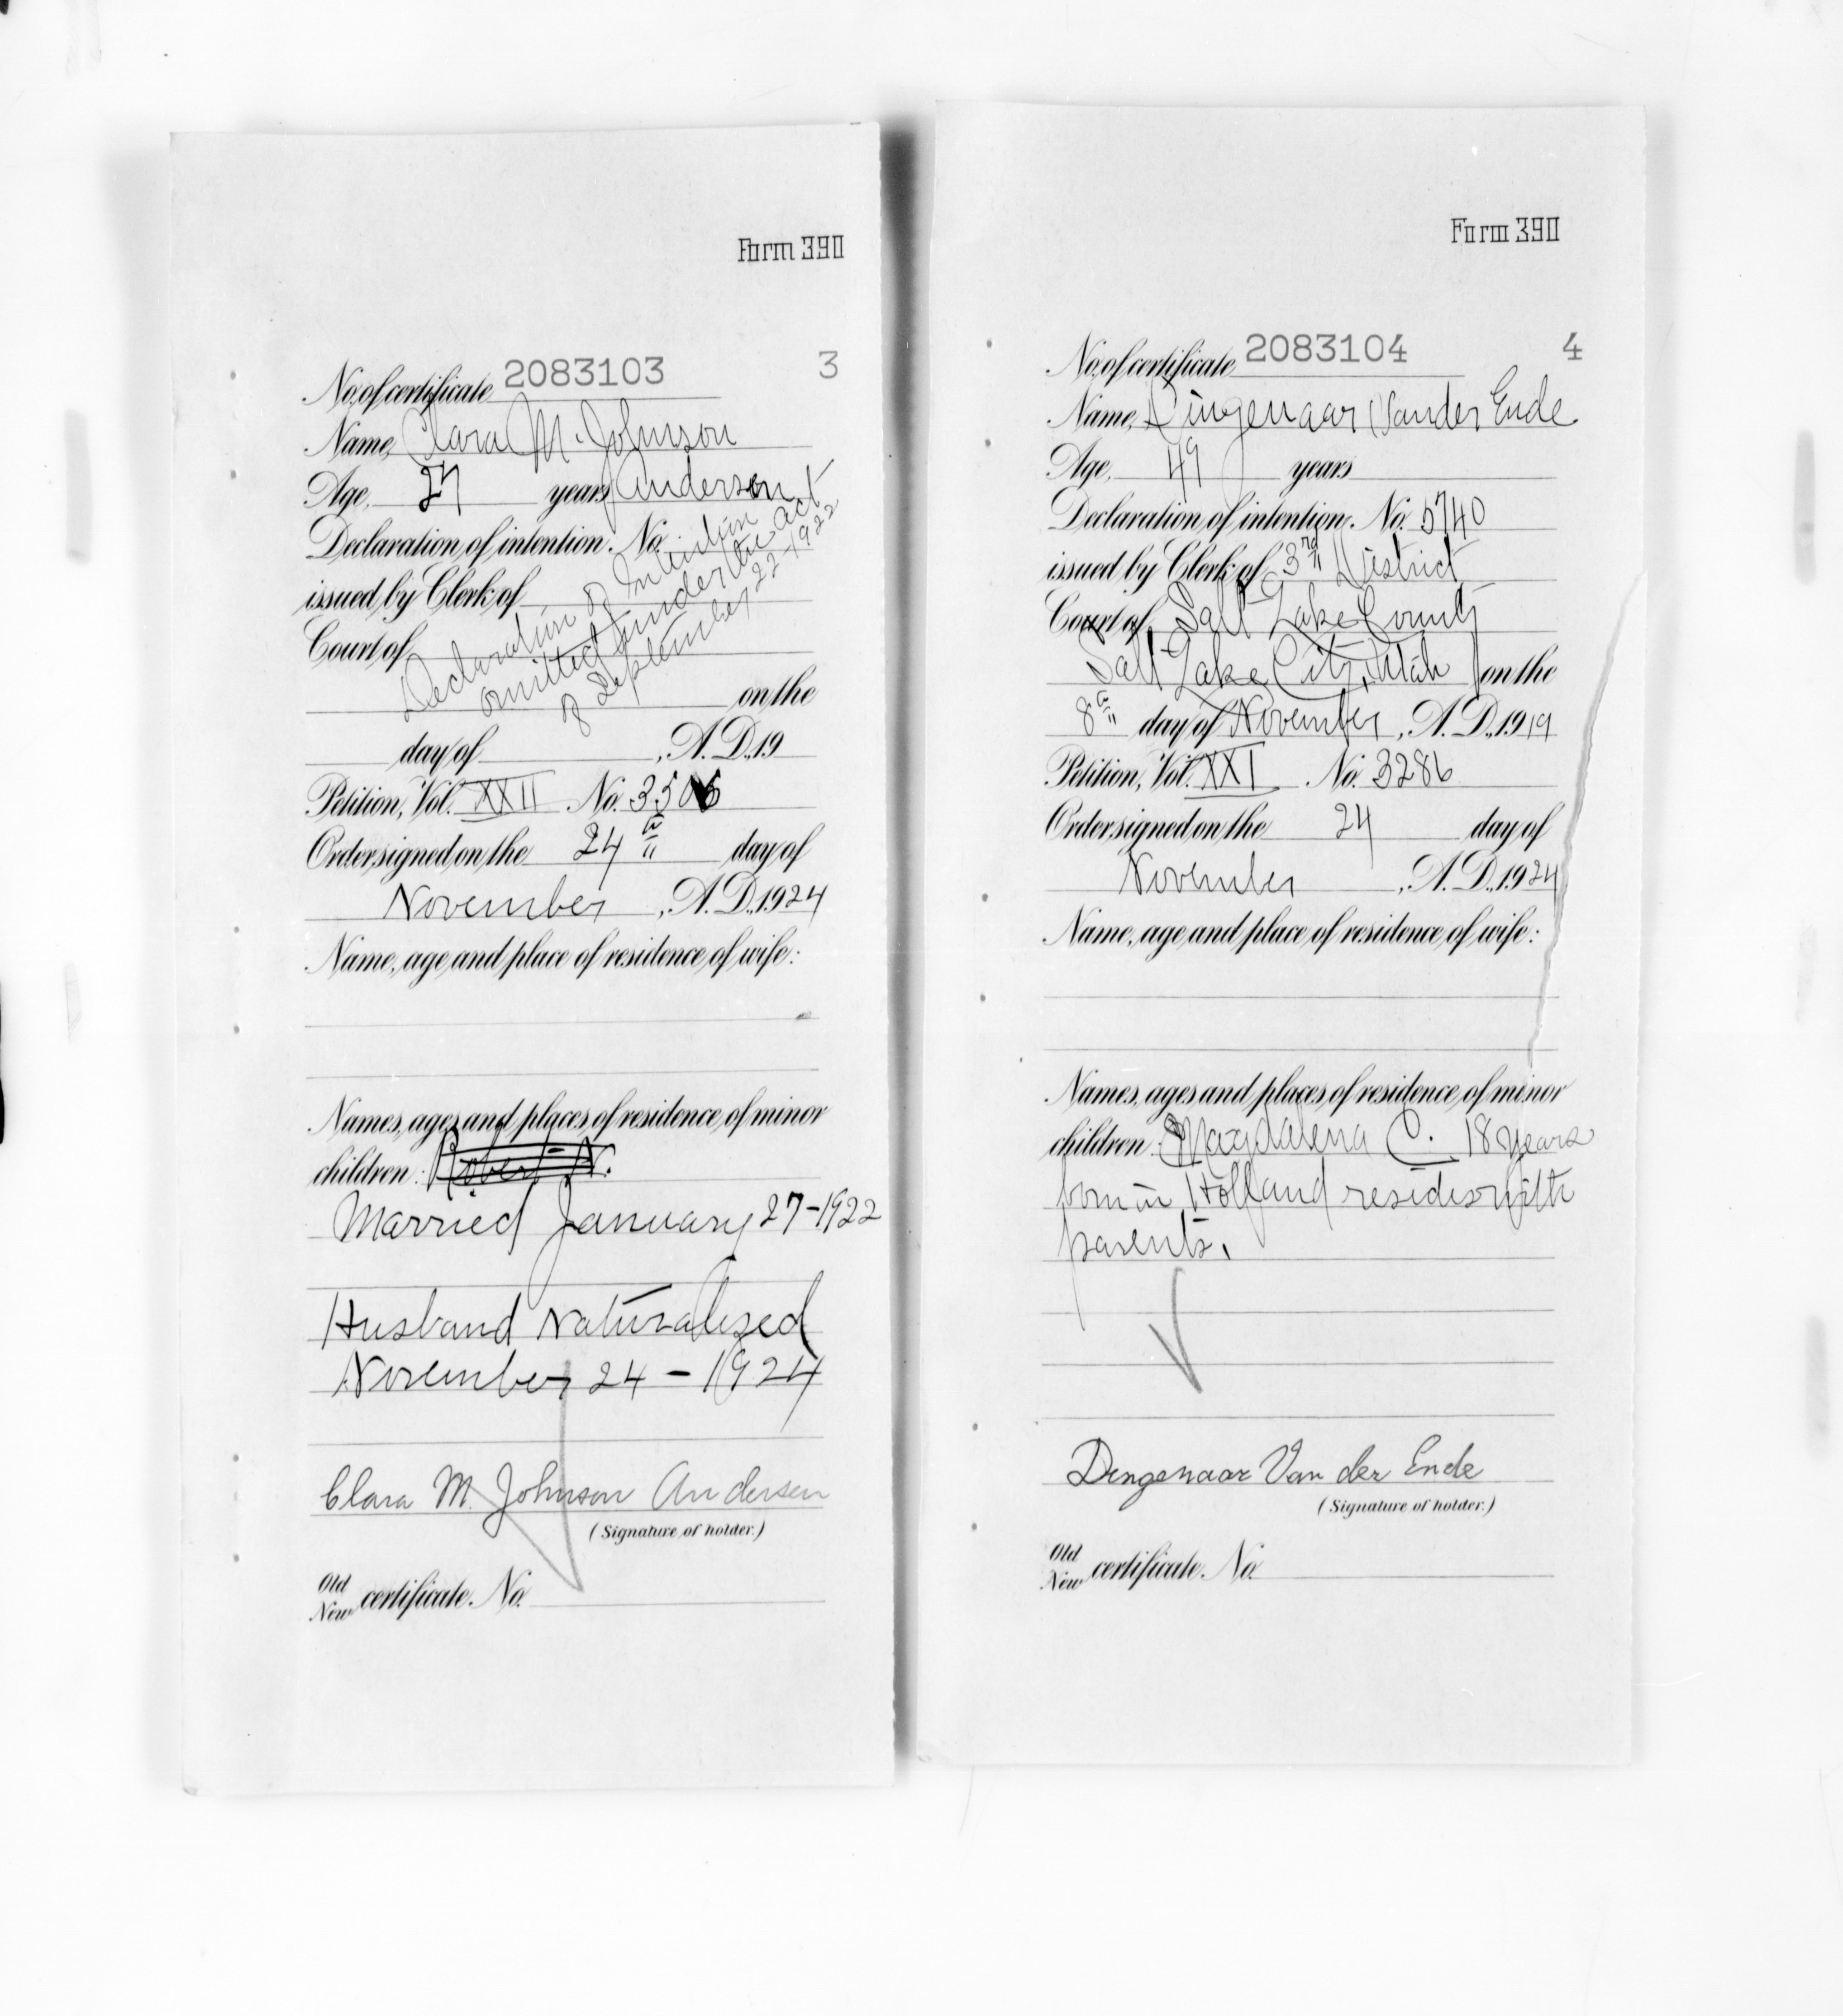 Form 390
No. of certificate 2083103 3
Name, Clara M. Johnson
Age, 27 years Andersen
Declaration of intention. No.
issued by Clerk of
Court of
Declaration of Intention
omitted under the act
of September 22-1922
on the
day of , A.D. 19
Petition, Vol. XXII No. 3505
Order signed on the 24th day of
November , A.D. 1924
Name, age and place of residence of wife:
Names, ages and places of residence of minor
children: Robert N.
Married January 27-1922
Husband Naturalized
November 24 - 1924
Clara M. Johnson Andersen
(Signature of holder.)
Old
New certificate. No.
Form 390
No. of certificate 2083104 4
Name, Dingenaar Vander Ende
Age, 49 years
Declaration of intention. No. 5740
issued by Clerk of 3rd District
Court of Salt Lake County
Salt Lake City, Utah on the
8th day of November, A.D. 1919
Petition, Vol. XXI No. 3286
Order signed on the 24 day of
November , A.D. 1924
Name, age and place of residence of wife:
Names, ages and places of residence of minor
children: Magdalena C. 18 years
born in Holland resides with
parents.
Dingenaar Van der Ende
(Signature of holder.)
Old
New certificate. No.